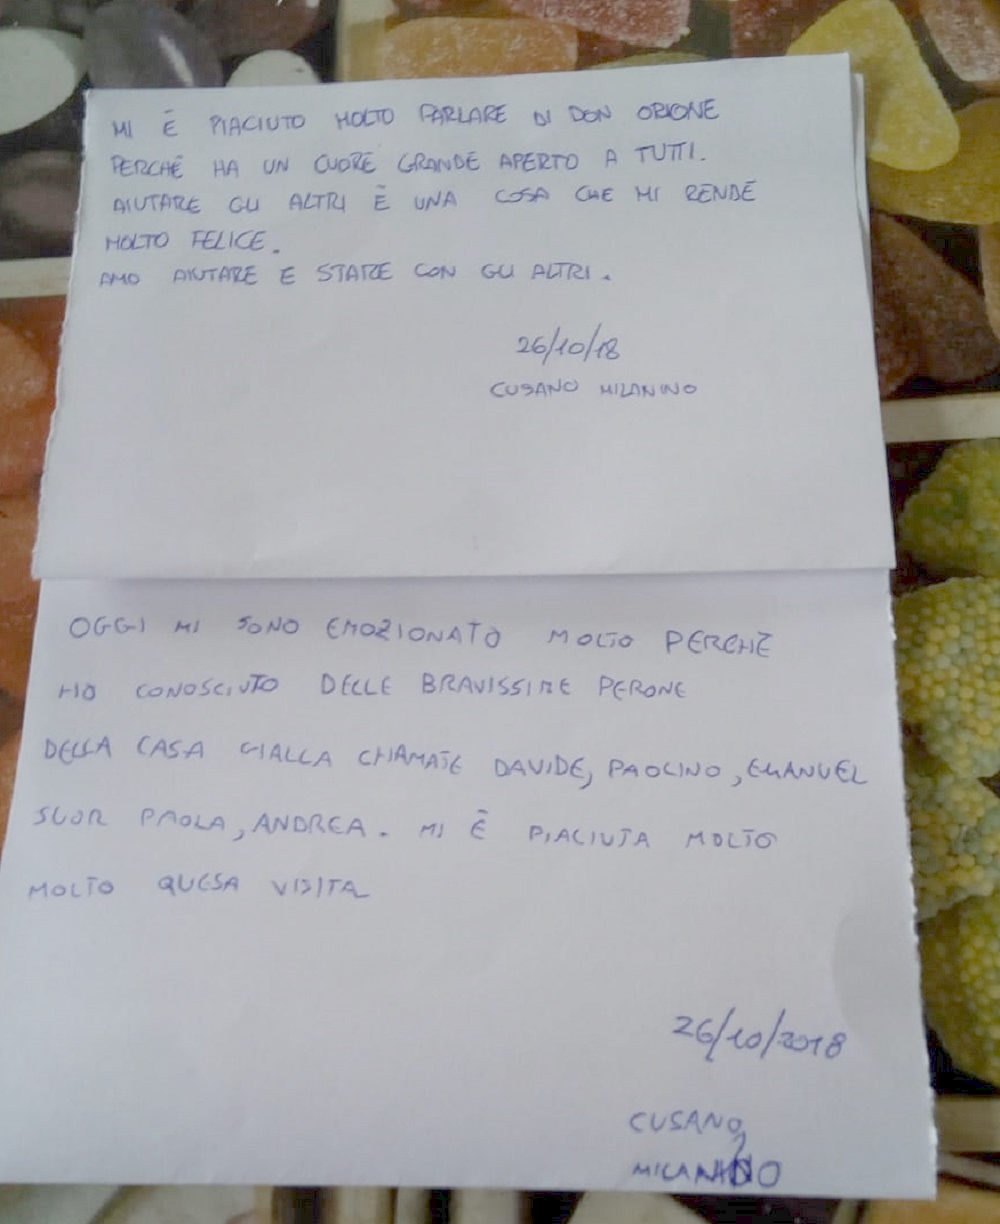 MI È PIACIUTO MOLTO PARLARE DI DON ORIONE
PERCHÉ HA UN CUORE GRANDE APERTO A TUTTI.
AIUTARE GLI ALTRI È UNA COSA CHE MI RENDE
MOLTO FELICE.
AMO AIUTARE E STARE CON GLI ALTRI.
26/10/18
CUSANO MILANINO
OGGI MI SONO EMOZIONATO MOLTO PERCHÉ
HO CONOSCIUTO DELLE BRAVISSIME PERONE
DELLA CASA GIALLA CHIAMATE DAVIDE, PAOLINO, EMANUEL
SUOR PAOLA, ANDREA. MI È PIACIUTA MOLTO
MOLTO QUESA VISITA
26/10/2018
CUSANO